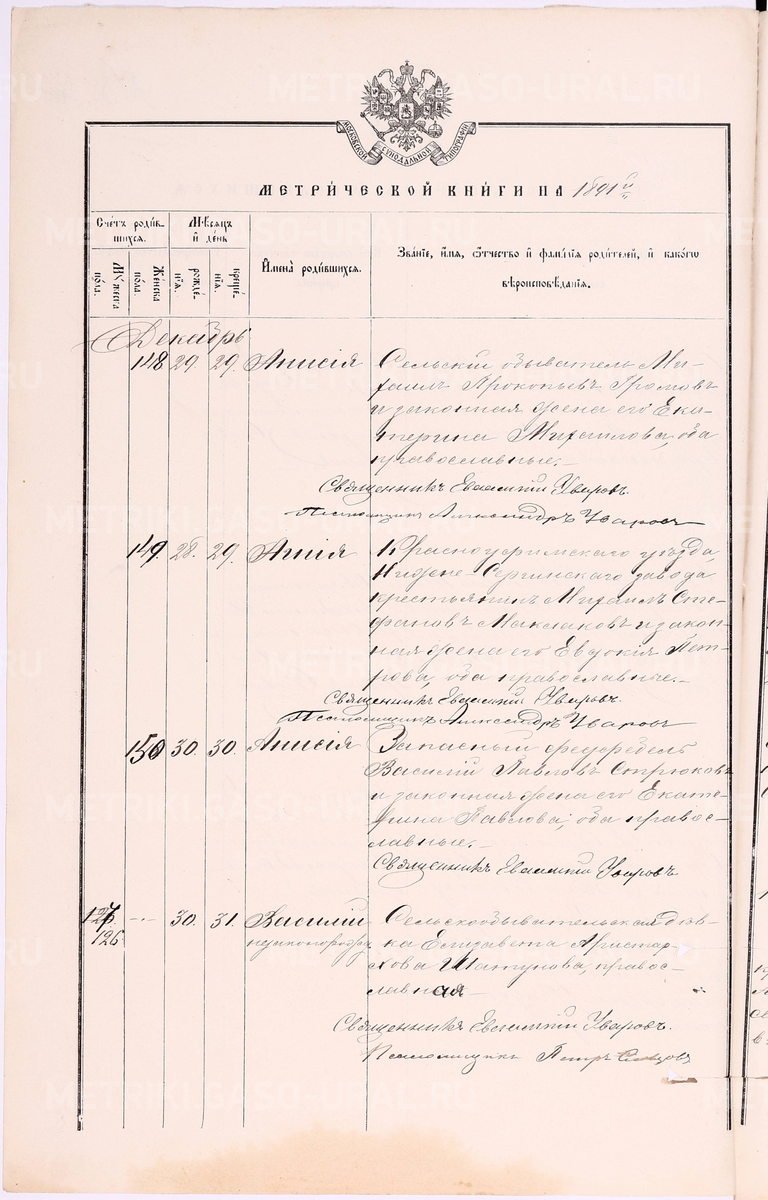 МОСКОВСКОЙ СѴНОДАЛЬНОЙ ТИПОГРАФІИ
МЕТРИ́ЧЕСКОЙ КНИ́ГИ НА 1891й
Сче́тъ роди́в-
шихся.
Мѣ́сяцъ
и де́нь
Имена̀ роди́вшихся.
Зва́нїе, и́мя, ѻ҆́тчество и҆ фами́лїя роди́телей, и҆ како́гѡ
вѣроисповѣ́данїя.
Му́жеска
по́ла.
Же́нска
по́ла.
рожде́-
нїя.
креще́-
нїя.
Декабрь
148 29. 29. Анисія Сельскій обыватель Ми-
хаилъ Прокопьевъ Громовъ
и законная жена его Ека-
терина Михаилова, оба
православные.-
Священникъ Евѳимій Уваровъ.
Псаломщикъ Александръ Уваровъ
149. 28. 29. Анисія Красноуфимскаго уѣзда,
Нижне-Сергинскаго завода
крестьянинъ Михаилъ Сте-
фановъ Маклаковъ и закон-
ная жена его Евдокія Пет-
рова, оба православные.-
Священникъ Евѳимій Уваровъ.
Псаломщикъ Александръ Уваровъ
150 30. 30. Анисія Запасный фельдфебель
Василій Павловъ Стрюковъ
и законная жена его Екате-
рина Павлова; оба правос-
лавные.-
Священникъ Евѳимій Уваровъ
127 -.- 30. 31. Василій Сельскообывательская дѣв-
126 незаконорожд ка Елизавета Аристар-
хова Шатунова, правос-
лавная
Священникъ Евѳимій Уваровъ.
Псаломщикъ Петръ Слѣпцовъ
METRIKI.GASO-URAL.RU